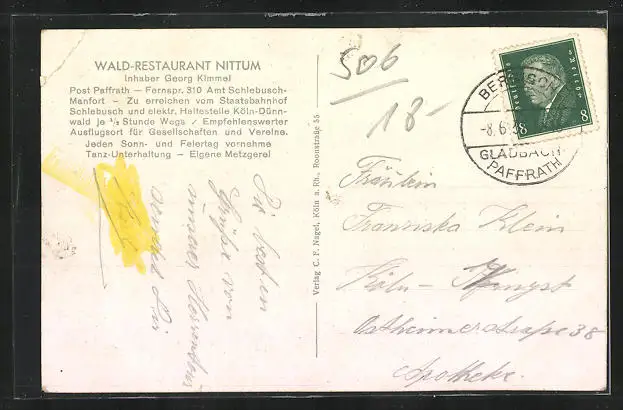 WALD-RESTAURANT NITTUM
Inhaber Georg Kimmel
Post Paffrath — Fernspr. 310 Amt Schlebusch-
Manfort — Zu erreichen vom Staatsbahnhof
Schlebusch und elektr. Haltestelle Köln-Dünn-
wald je ½ Stunde Wegs / Empfehlenswerter
Ausflugsort für Gesellschaften und Vereine.
Jeden Sonn- und Feiertag vornehme
Tanz-Unterhaltung — Eigene Metzgerei
Die besten
Grüße von
unserer
sendet Dir
Verlag C. F. Nagel, Köln a. Rh., Roonstraße 55
506
18-
Deutsches Reich
8 8
BERG.
-8.6.
GLADBACH-
PAFFRATH
Fräulein
Franziska Klein
Köln-
Ostheimerstrasse 38
Apotheke.